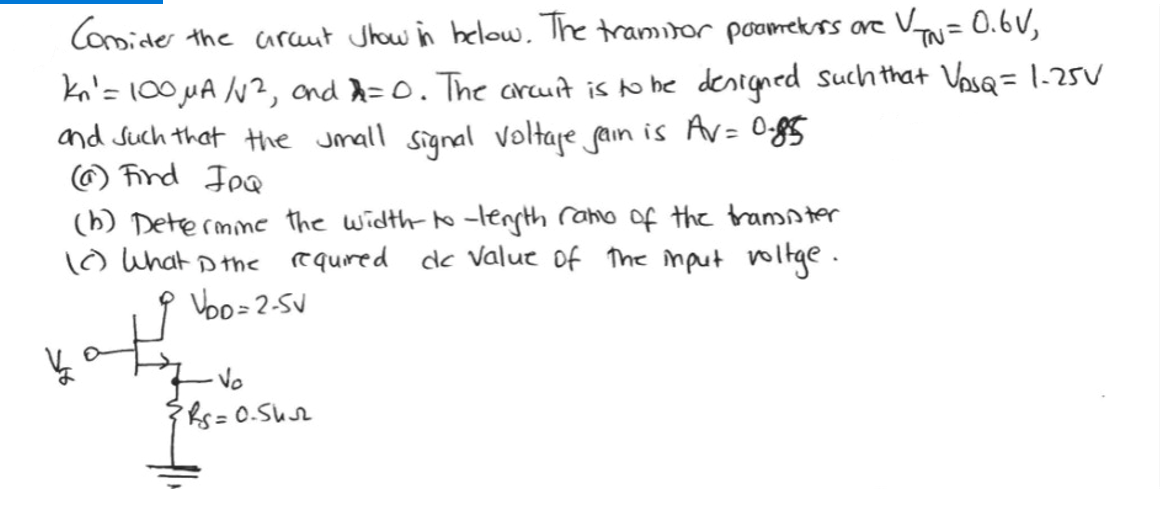 Consider the circuit show in below. The transistor parameters are VTN = 0.6V,
kn' = 100 μA/V², and λ = 0. The circuit is to be designed such that VDSQ = 1.25V
and such that the small signal voltage gain is Av = 0.85
(a) Find IDQ
(b) Determine the width-to-length ratio of the transistor
(c) What is the required dc value of the input voltge.
VDD = 2.5V
VI
Vo
Rs = 0.5kΩ